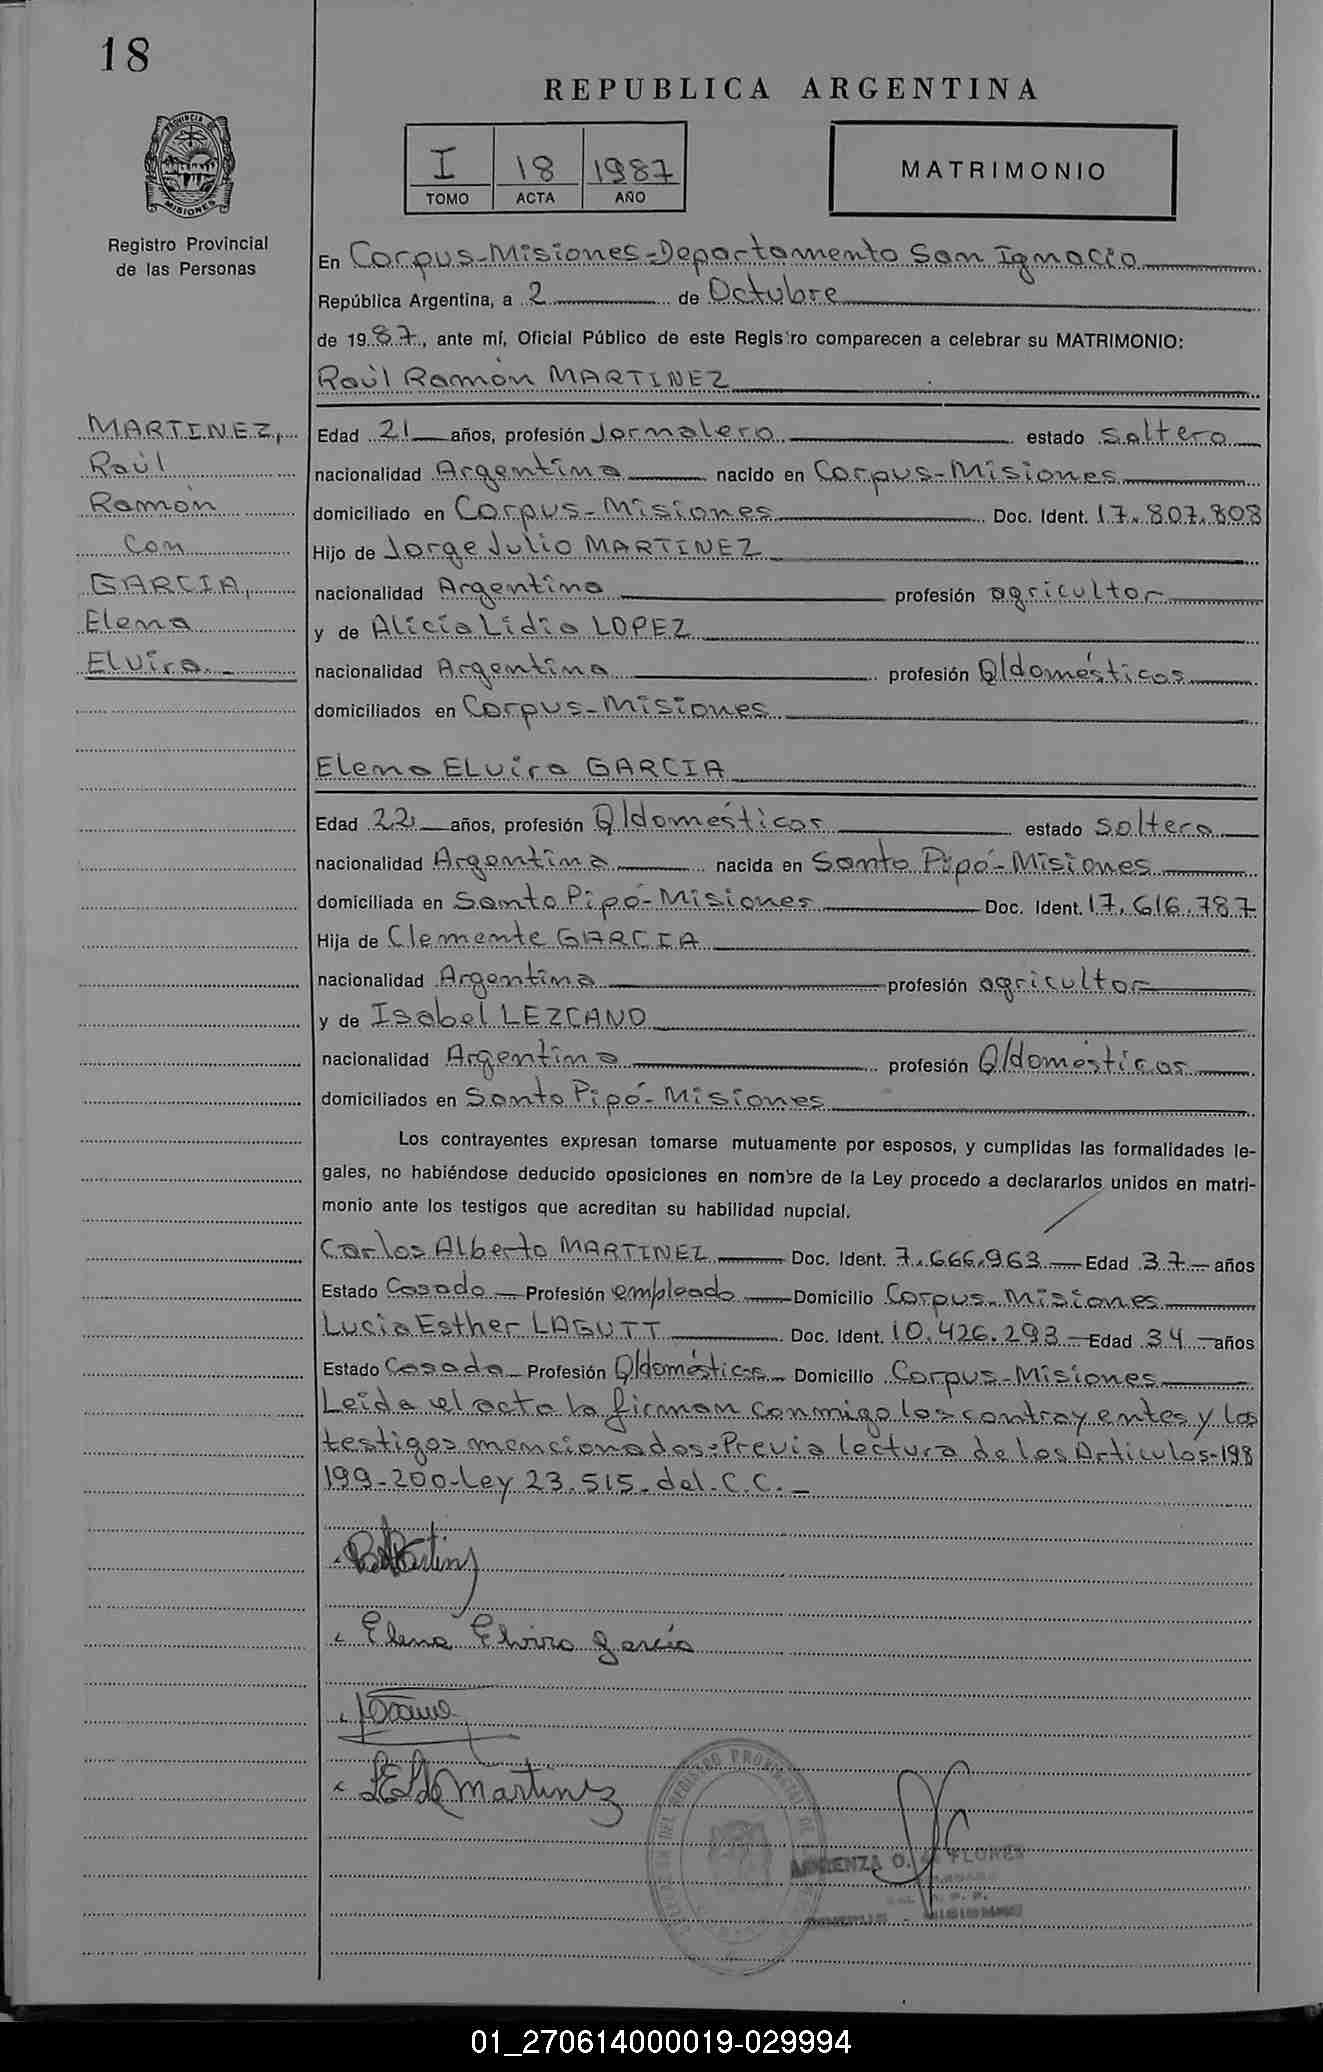 18
REPUBLICA ARGENTINA
PROVINCIA DE
MISIONES
I 18 1987
TOMO ACTA AÑO
MATRIMONIO
Registro Provincial
de las Personas
En Corpus-Misiones-Departamento San Ignacio
República Argentina, a 2 de Octubre
de 1987, ante mí, Oficial Público de este Registro comparecen a celebrar su MATRIMONIO:
Raúl Ramón MARTINEZ
MARTINEZ,
Raúl
Ramón
con
GARCIA,
Elena
Elvira.-
Edad 21 años, profesión Jornalero estado soltero
nacionalidad Argentina nacido en Corpus-Misiones
domiciliado en Corpus-Misiones Doc. Ident. 17.807.808
Hijo de Jorge Julio MARTINEZ
nacionalidad Argentina profesión agricultor
y de Alicia Lidia LOPEZ
nacionalidad Argentina profesión Q/domésticos
domiciliados en Corpus-Misiones
Elena Elvira GARCIA
Edad 22 años, profesión Q/domésticos estado soltera
nacionalidad Argentina nacida en Santo Pipó-Misiones
domiciliada en Santo Pipó-Misiones Doc. Ident. 17.616.787
Hija de Clemente GARCIA
nacionalidad Argentina profesión agricultor
y de Isabel LEZCANO
nacionalidad Argentina profesión Q/domésticos
domiciliados en Santo Pipó-Misiones
Los contrayentes expresan tomarse mutuamente por esposos, y cumplidas las formalidades le-
gales, no habiéndose deducido oposiciones en nombre de la Ley procedo a declararlos unidos en matri-
monio ante los testigos que acreditan su habilidad nupcial.
Carlos Alberto MARTINEZ Doc. Ident. 7.666.963 Edad 37 años
Estado Casado Profesión empleado Domicilio Corpus-Misiones
Lucia Esther LAGUTT Doc. Ident. 10.426.293 Edad 34 años
Estado Casada Profesión Q/domésticos Domicilio Corpus-Misiones
Leída el acta la firman conmigo los contrayentes y los
testigos mencionados-Previa lectura de los Articulos-198
199-200-Ley 23.515.del.C.C.-
Elena Elvira García
Martinez
DEL REGISTRO PROVINCIAL DE
O. FLORES
01_270614000019-029994